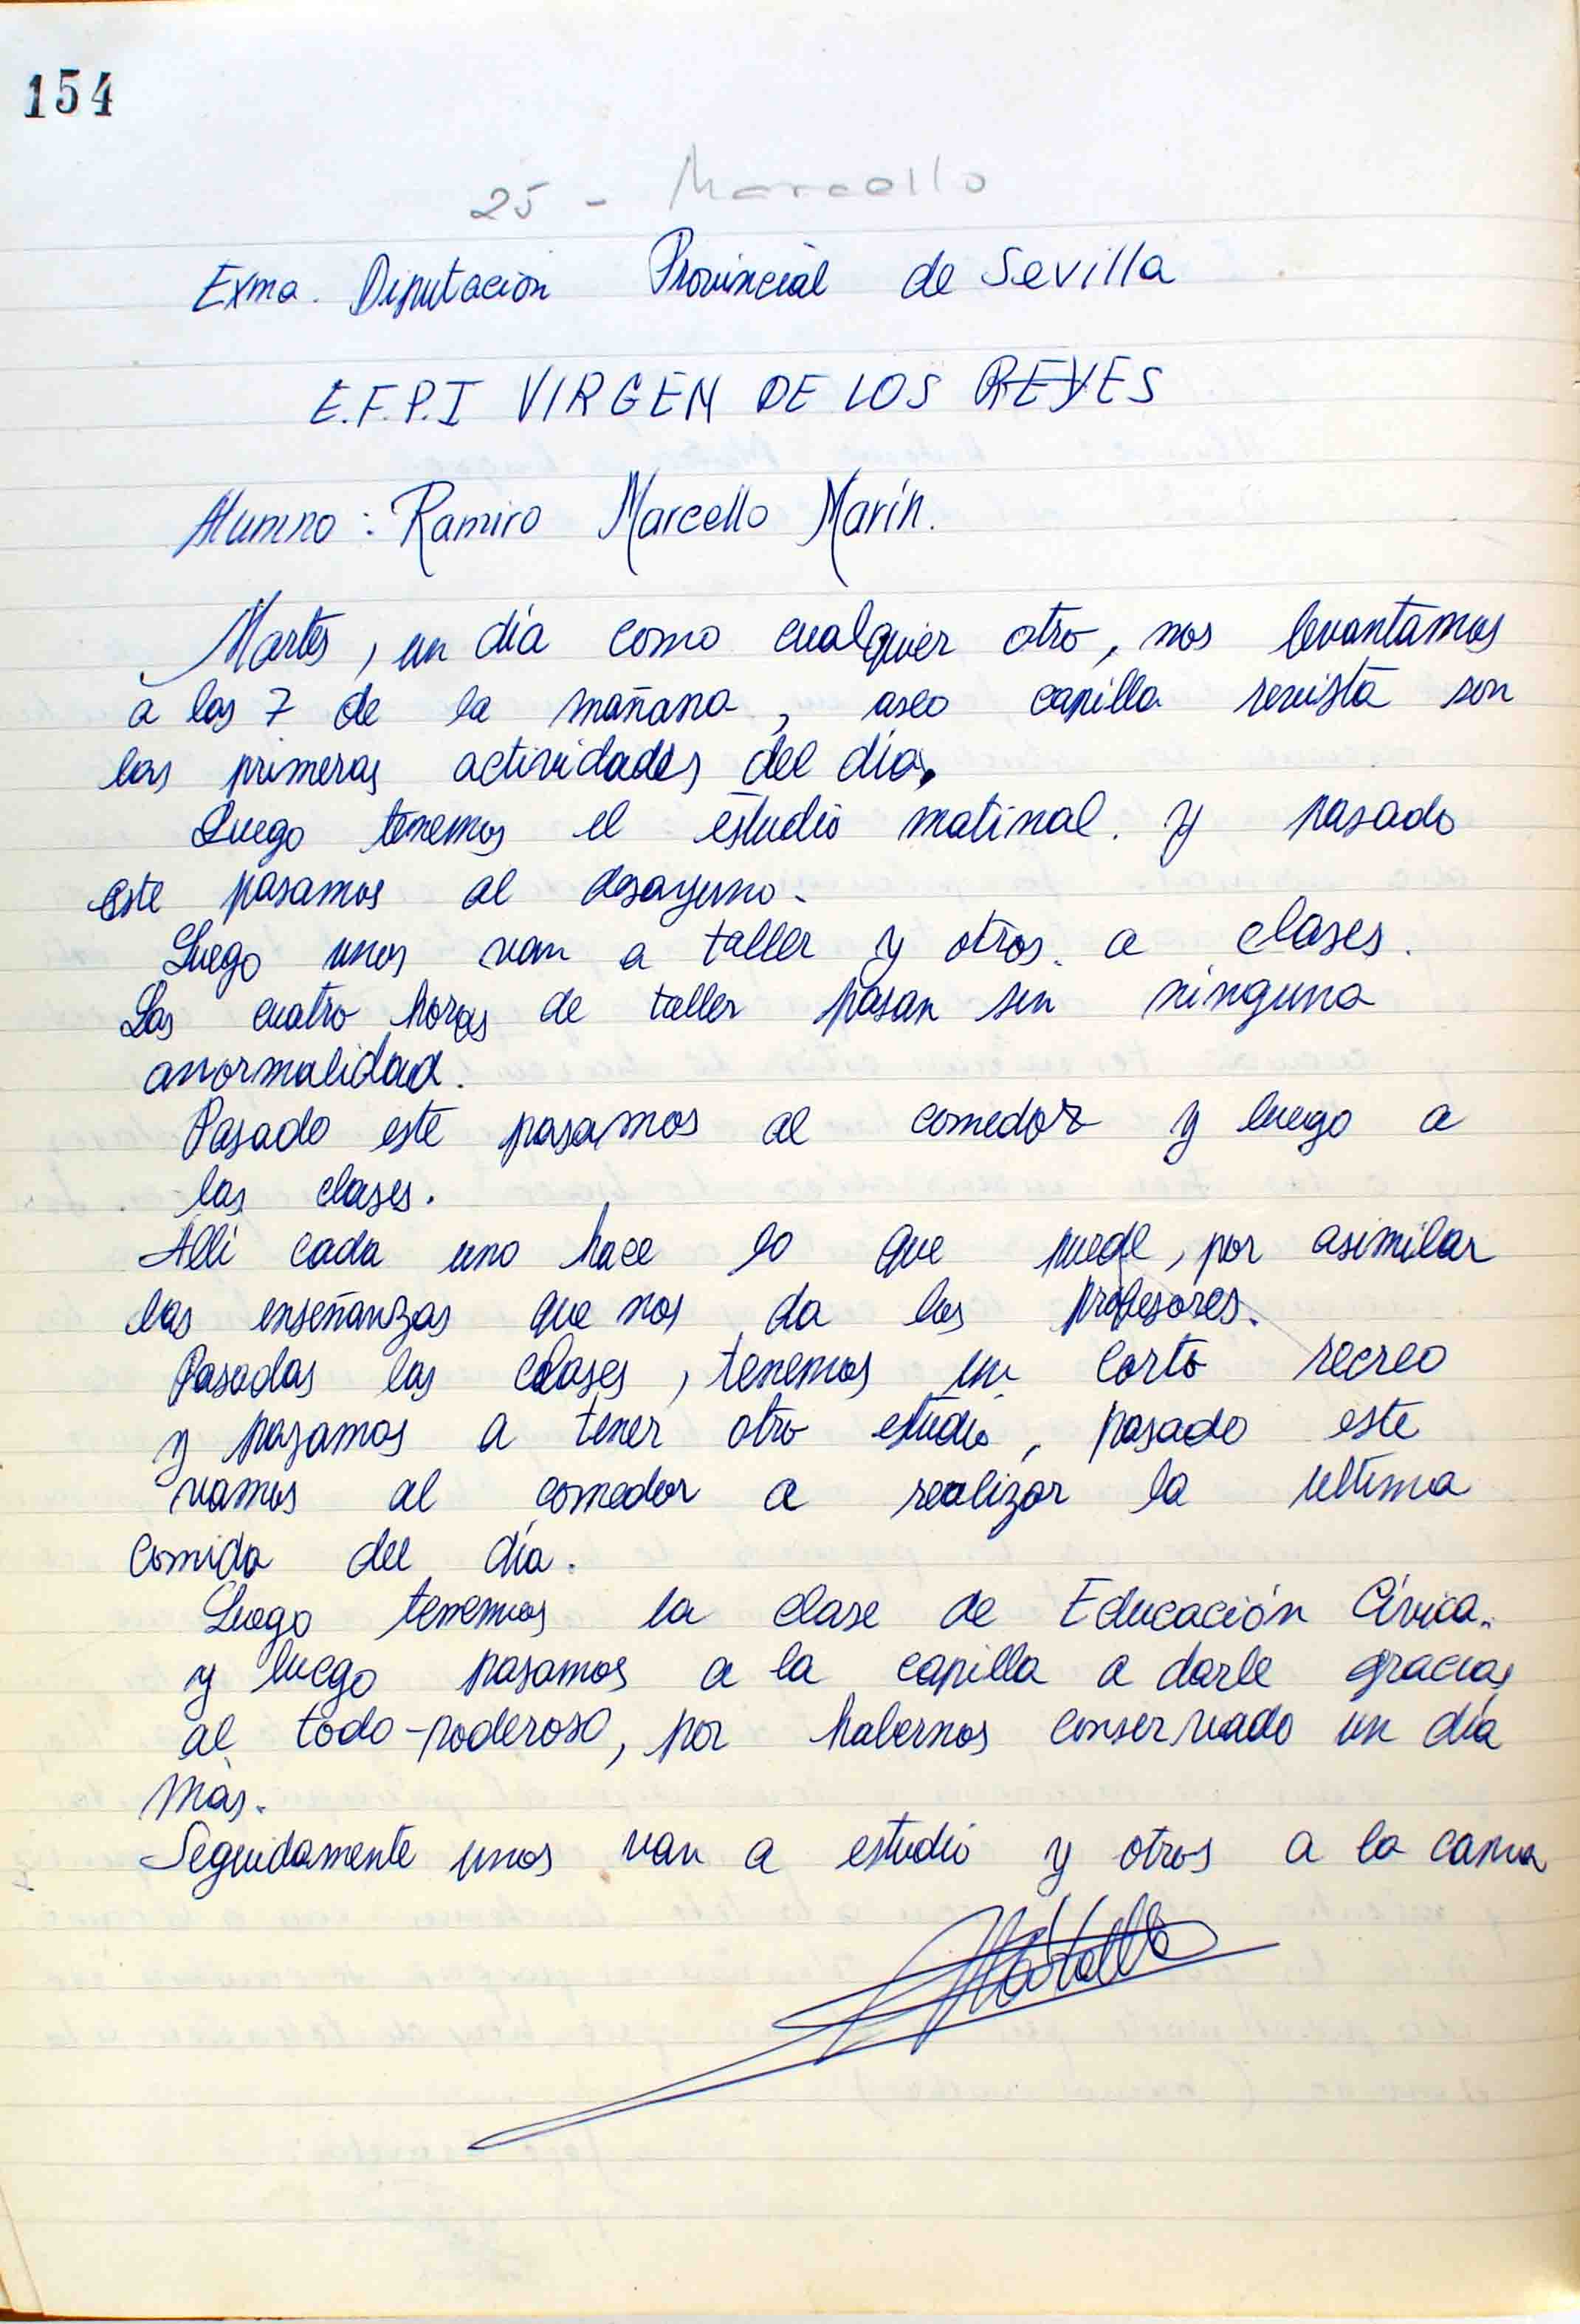 154
25 - Marcello
Exma. Diputación Provincial de Sevilla
E.F.P.I VIRGEN DE LOS REYES
Alumno: Ramiro Marcello Marín.
Martes, un día como cualquier otro, nos levantamos
a las 7 de la mañana, aseo capilla revista son
las primeras actividades del día.
Luego tenemos el estudio matinal. y pasado
este pasamos al desayuno.
Luego unos van a taller y otros. a clases.
Las cuatro horas de taller pasan sin ninguna
anormalidad.
Pasado este pasamos al comedor y luego a
las clases.
Allí cada uno hace lo que puede, por asimilar
las enseñanzas que nos da los profesores.
Pasadas las clases, tenemos un corto recreo
y pasamos a tener otro estudio, pasado este
vamos al comedor a realizar la ultima
comida del día.
Luego tenemos la clase de Educación Cívica.
y luego pasamos a la capilla a darle gracias
al todo-poderoso, por habernos conservado un día
más.
Seguidamente unos van a estudio y otros a la cama